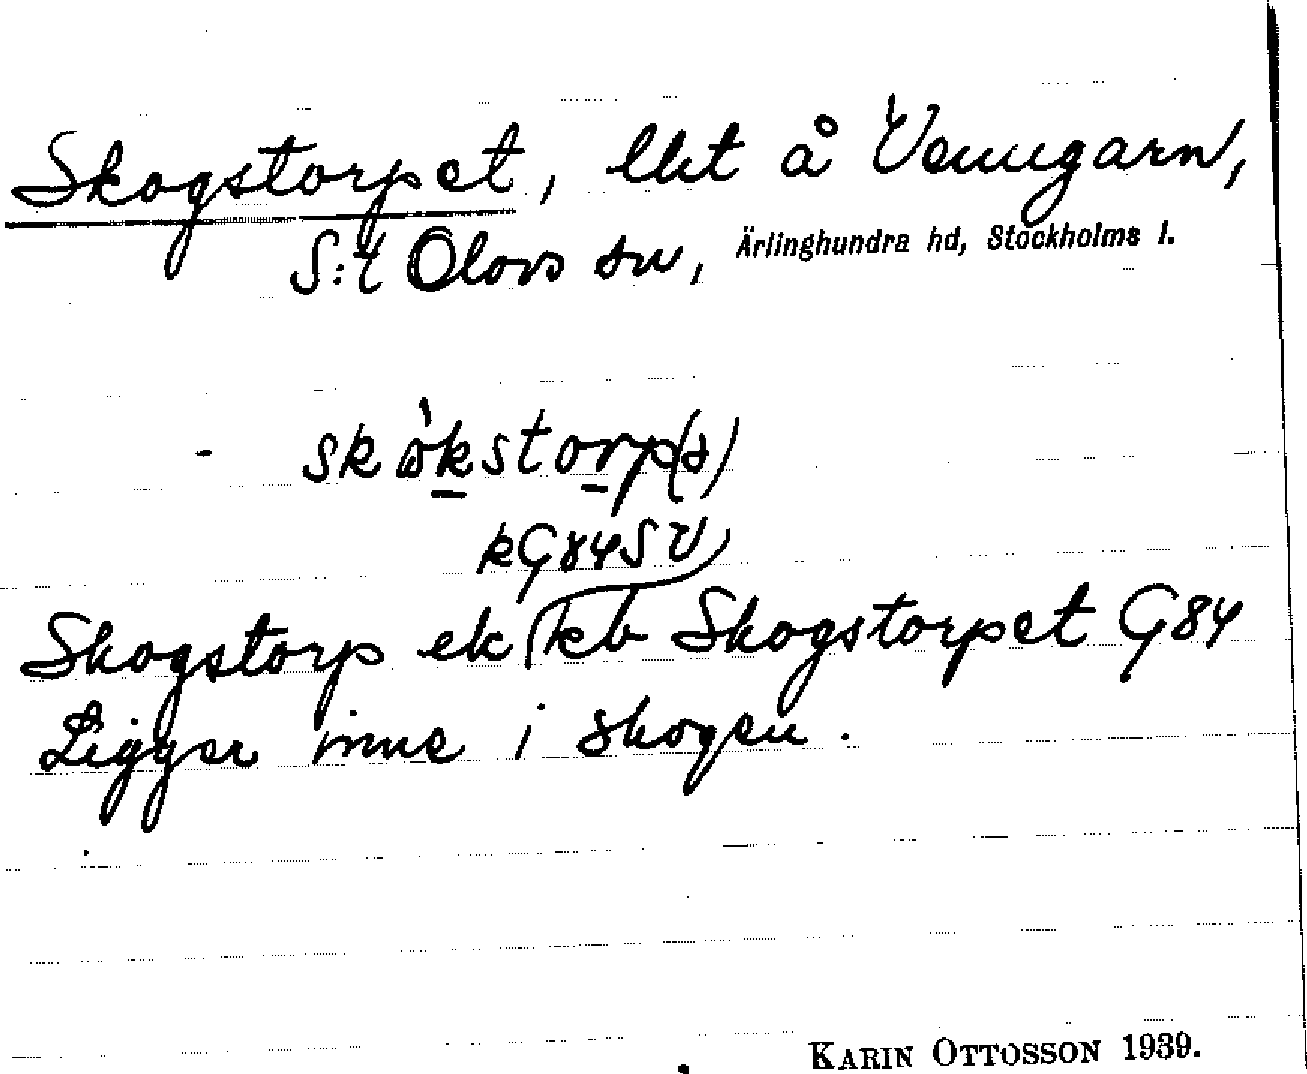 Skogstorpet, lht å Venngarn,
S:t Olovs sn, Ärlinghundra hd, Stockholms l.
- skòkstorp(ə)
kG84SV
Skogstorp ek kb Skogstorpet G84
Ligger inne i skogen.
KARIN OTTOSSON 1939.